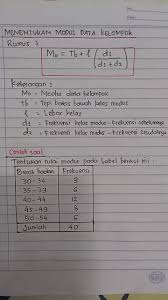 MENENTUKAN MODUS DATA KELOMPOK
Rumus :
Mo = Tb + l ( d1 / d1 + d2 )
Keterangan :
Mo = Modus data kelompok
Tb = Tepi batas bawah kelas modus
l = Lebar kelas
d1 = Frekuensi kelas modus - frekuensi sebelumnya
d2 = Frekuensi kelas modus - frekuensi sesudahnya
Contoh soal
Tentukan nilai modus pada tabel berikut ini :
Berat badan Frekuensi
30 - 34 9
35 - 39 6
40 - 44 12
45 - 49 8
50 - 54 6
Jumlah 40